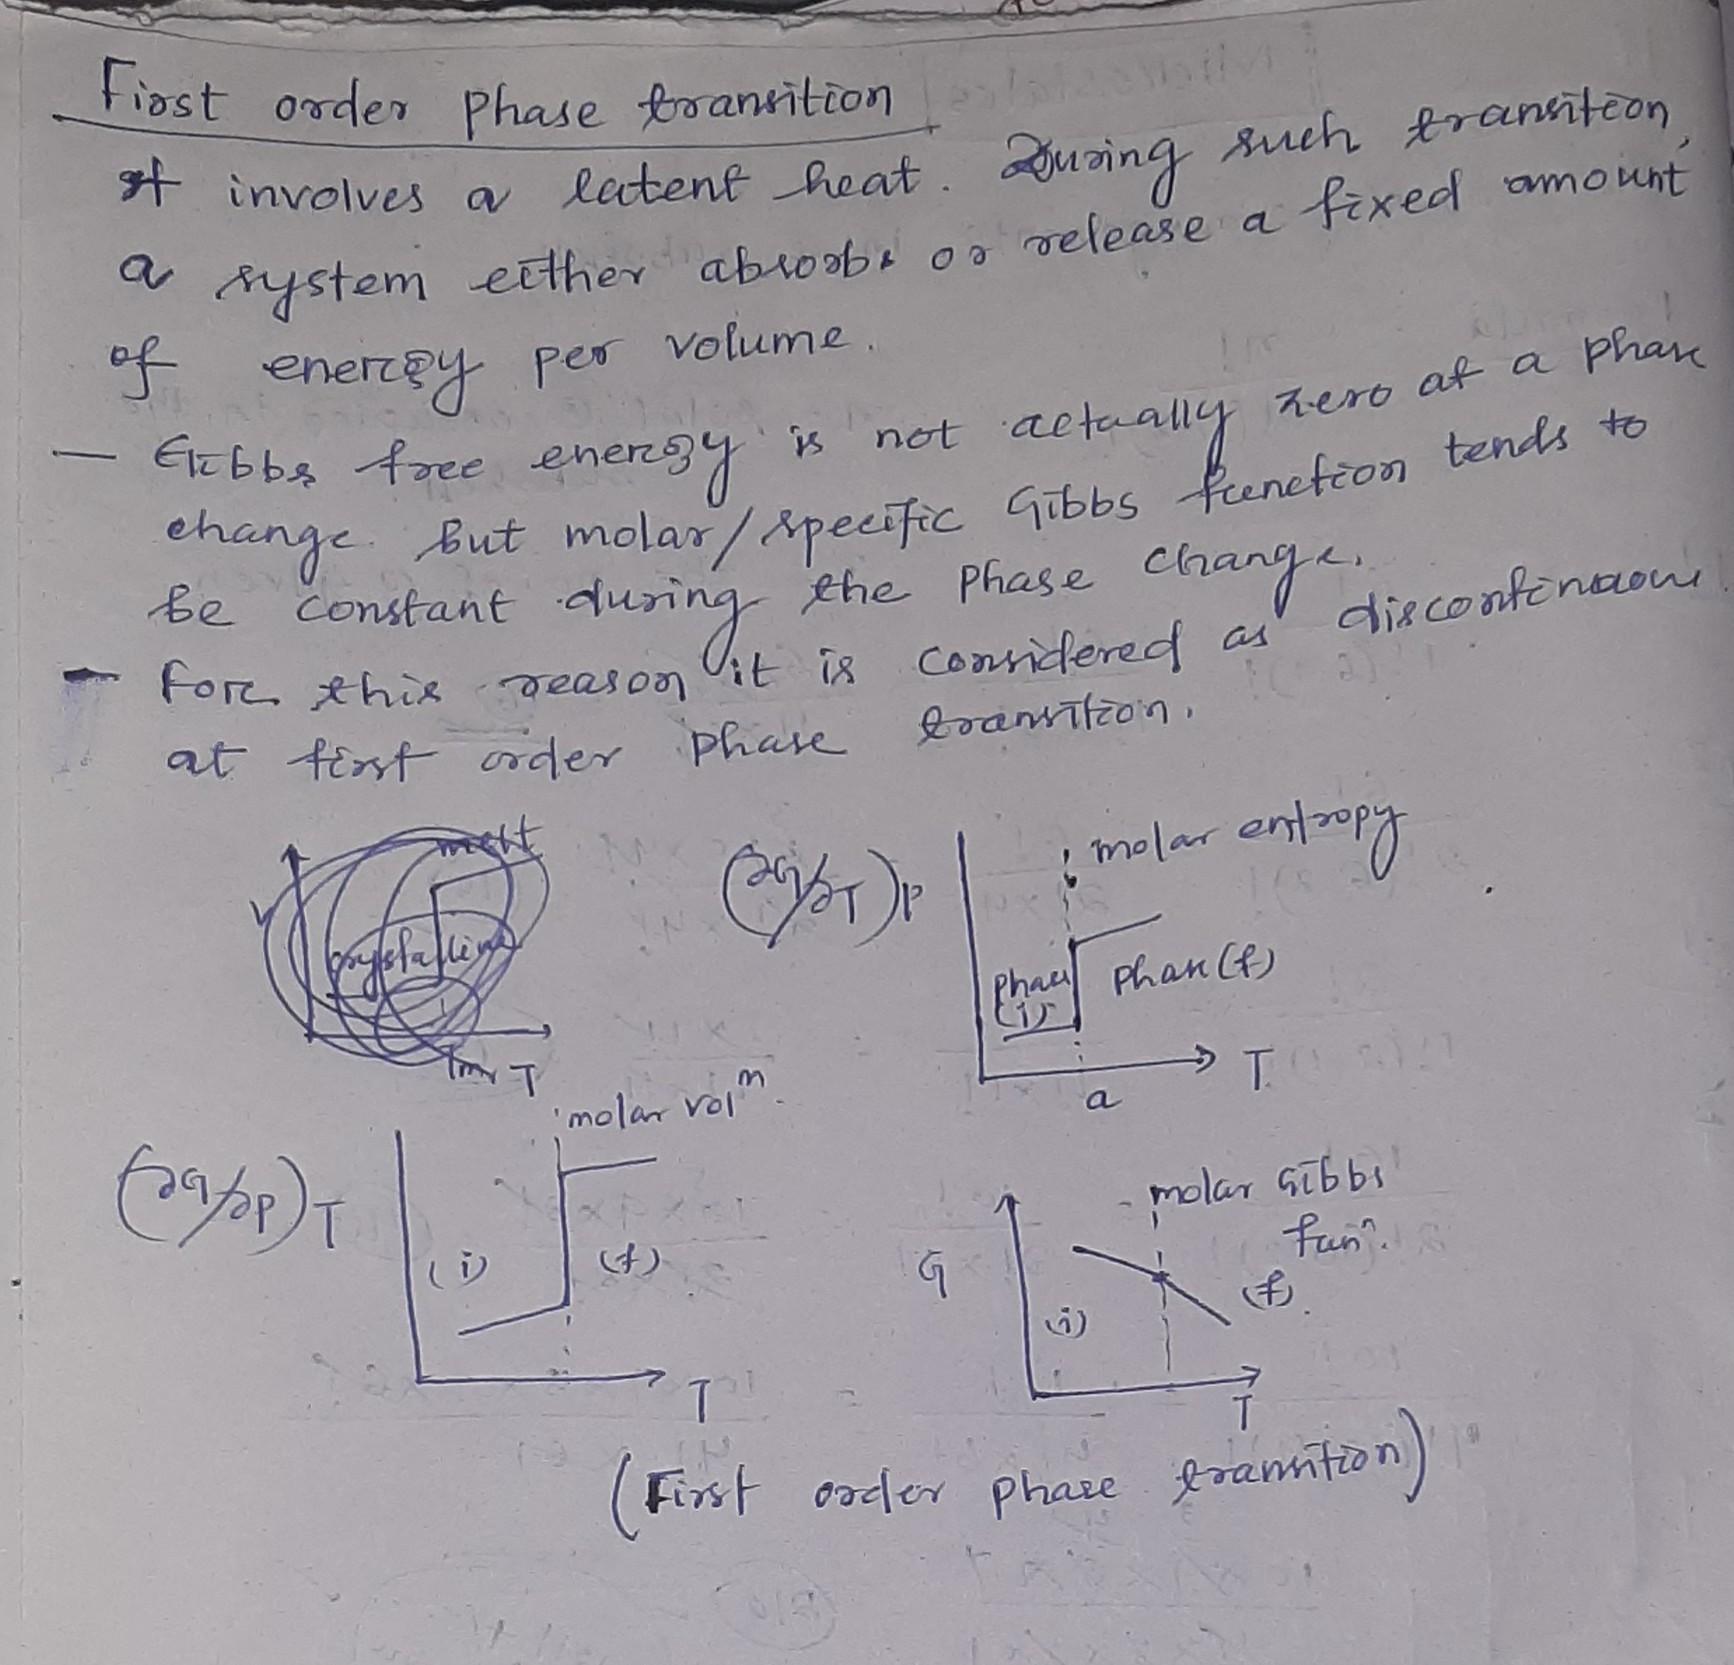 First order phase transition
It involves a latent heat. During such transition,
a system either absorbs or release a fixed amount
of energy per volume.
— Gibbs free energy is not actually zero at a phase
change. But molar/specific Gibbs function tends to
be constant during the phase change.
— For this reason it is considered as discontinuous
at first order phase transition.
melt
V
crystalline
Tm T
(∂G/∂T)P
molar entropy
phase (i)
phase (f)
a
T
(∂G/∂P)T
molar volm.
(i)
(f)
T
G
molar Gibbs
funn.
(i)
(f)
T
(First order phase transition)